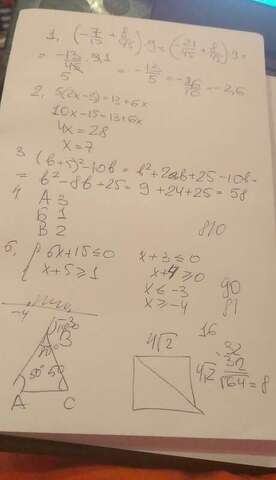 1, (-7/15 + 8/45) · 9 = (-21/45 + 8/45) 9 =
= -13/45 · 9,1 = -13/5 = -26/10 = -2,6
5
2, 5(2x-3)=13+6x
10x-15=13+6x
4x=28
x=7
3 (b+5)²-10b = b²+2ab+25-10b=
= b²-8b+25=9+24+25=58
4 А 3
Б 1
В 2
810
6, { 6x+15≤0 x+3≤0
x+5≥1 x+4≥0
x≤-3 90
x≥-4 81
-4
16
70°
B
50° 50
A C
4√2
4√2 32
32
√64=8